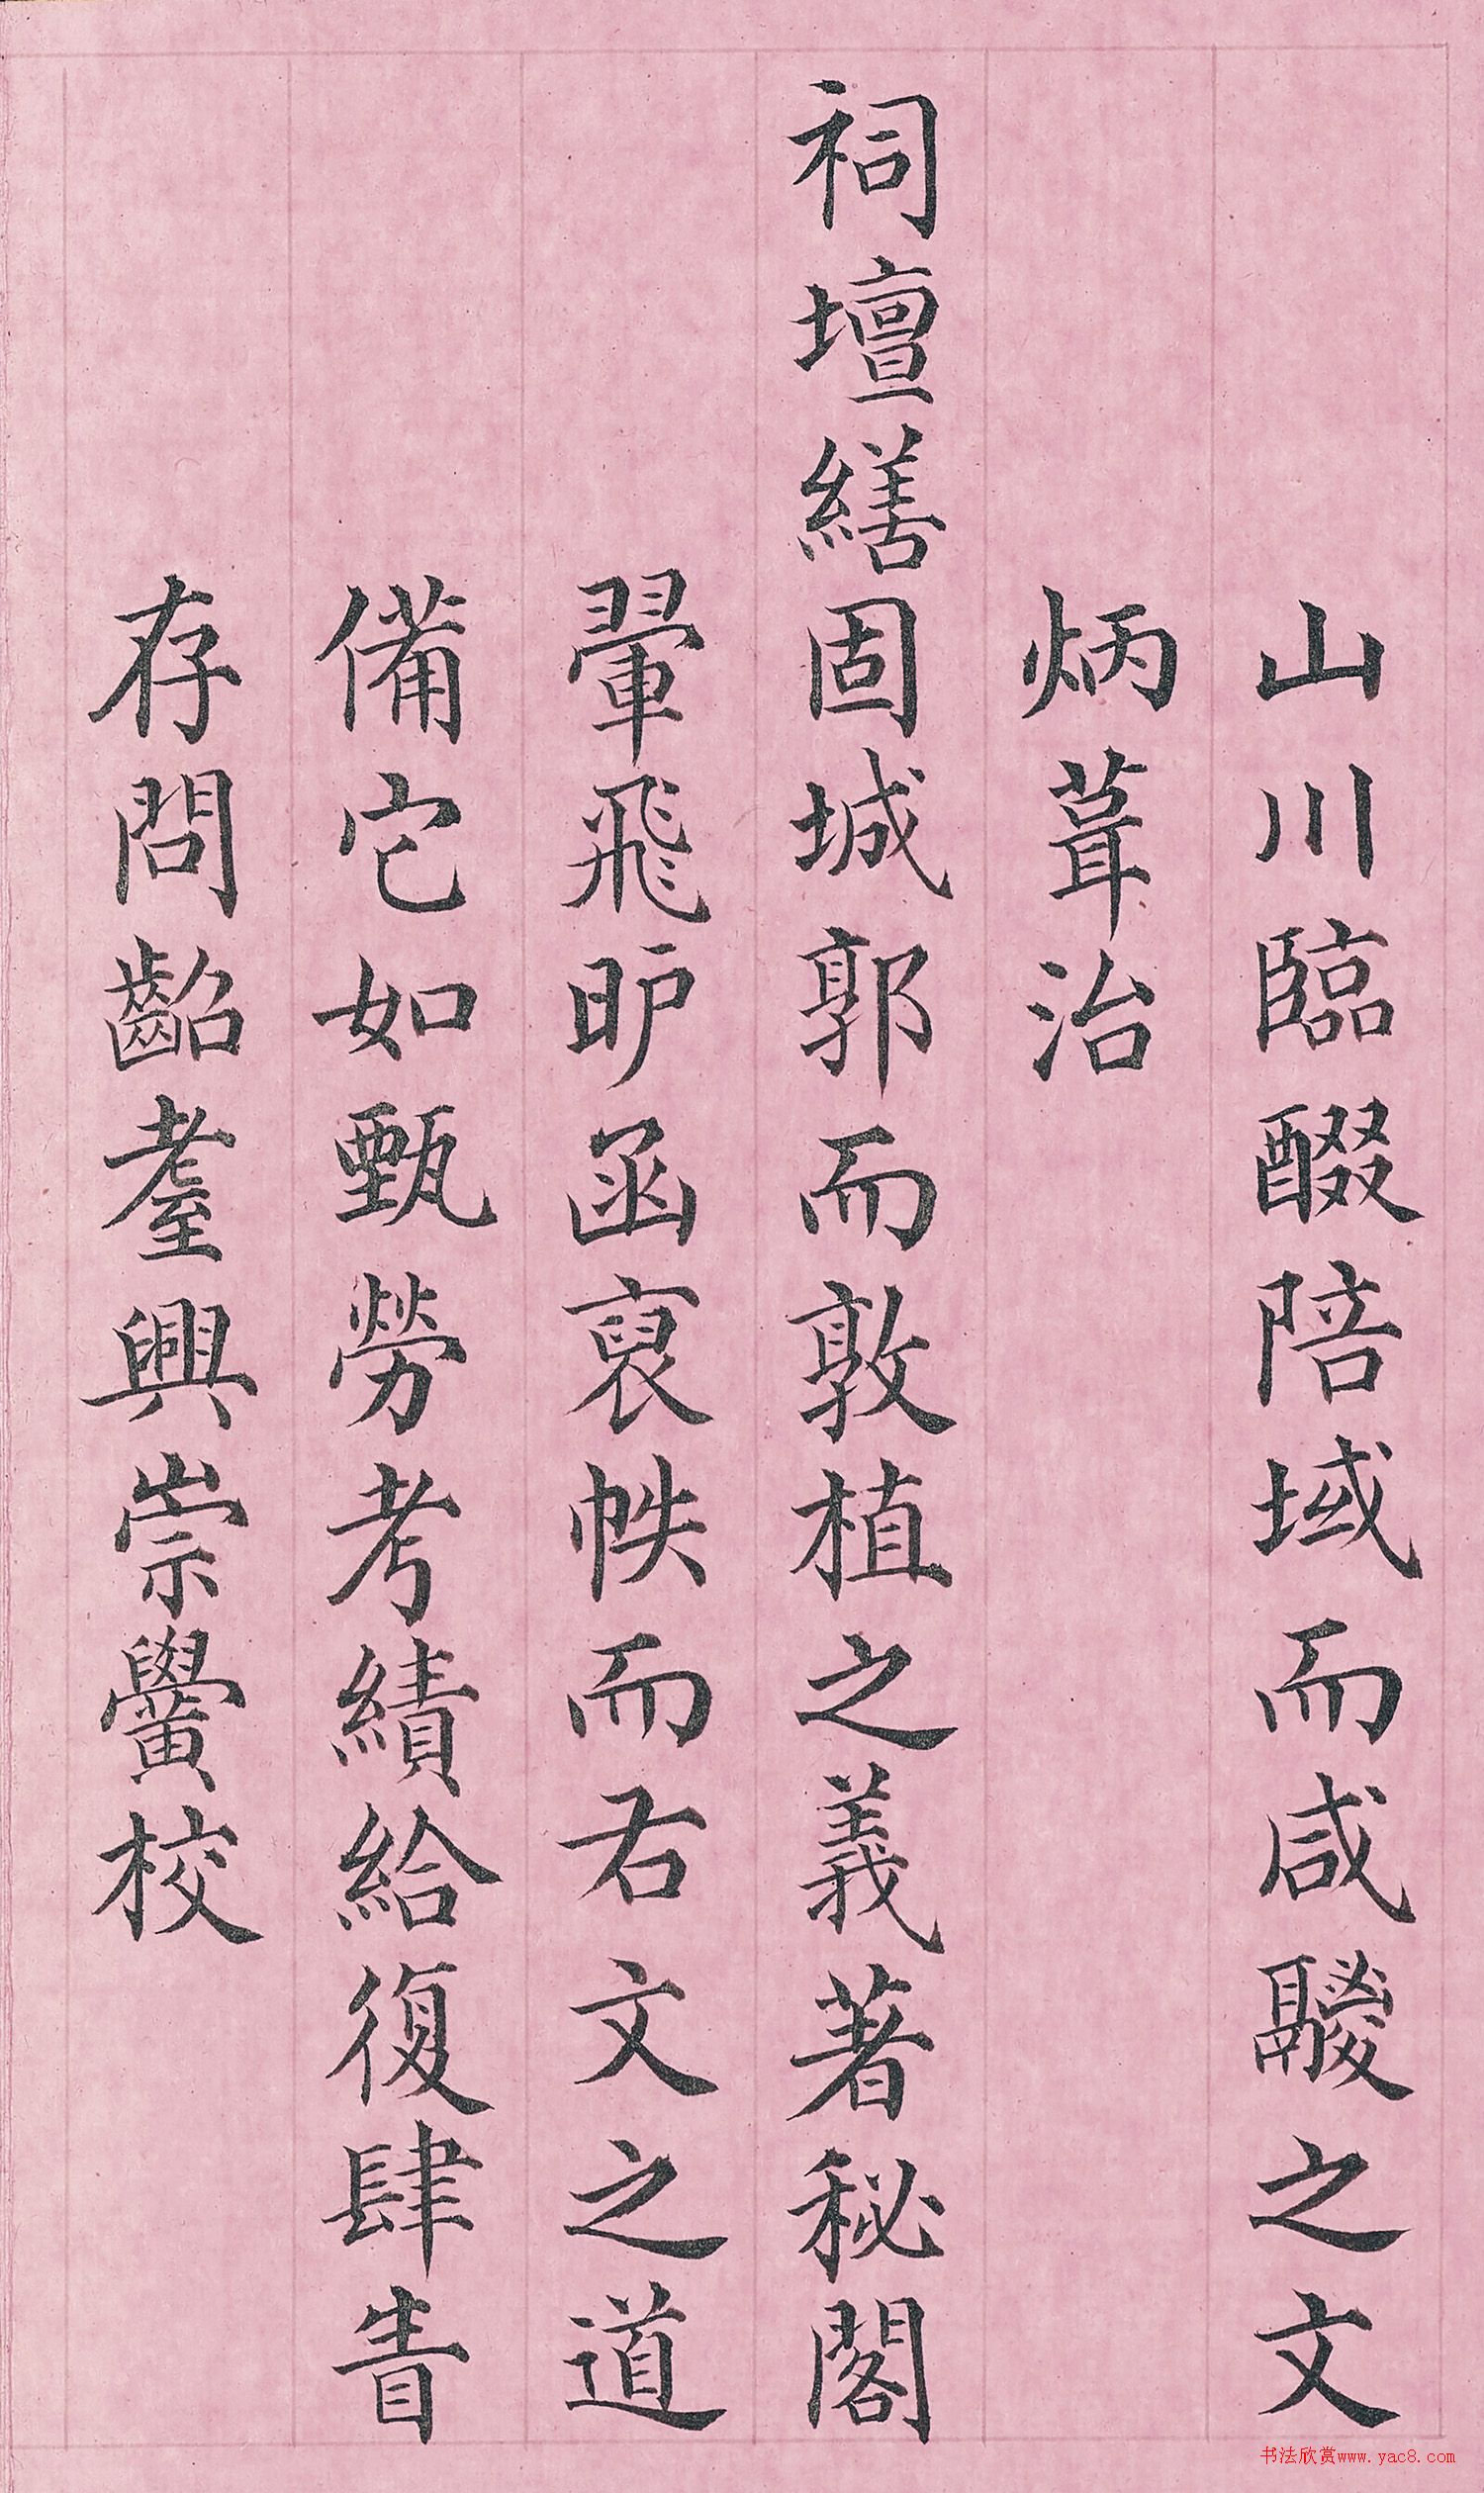 山川臨醊陪域而咸騣之文
炳葺治
祠壇繕固城郭而敦植之義著秘閣
翬飛昈函裒帙而右文之道
備它如甄勞考績給復肆眚
存問齠耋興崇黌校
书法欣赏www.yac8.com